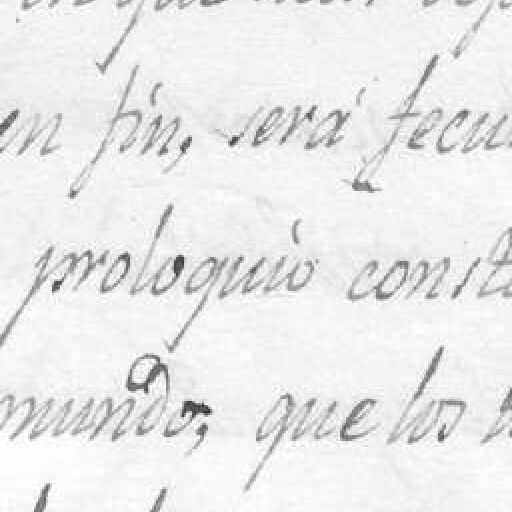 en fin, será fecu
proloquio const
mundo; que los